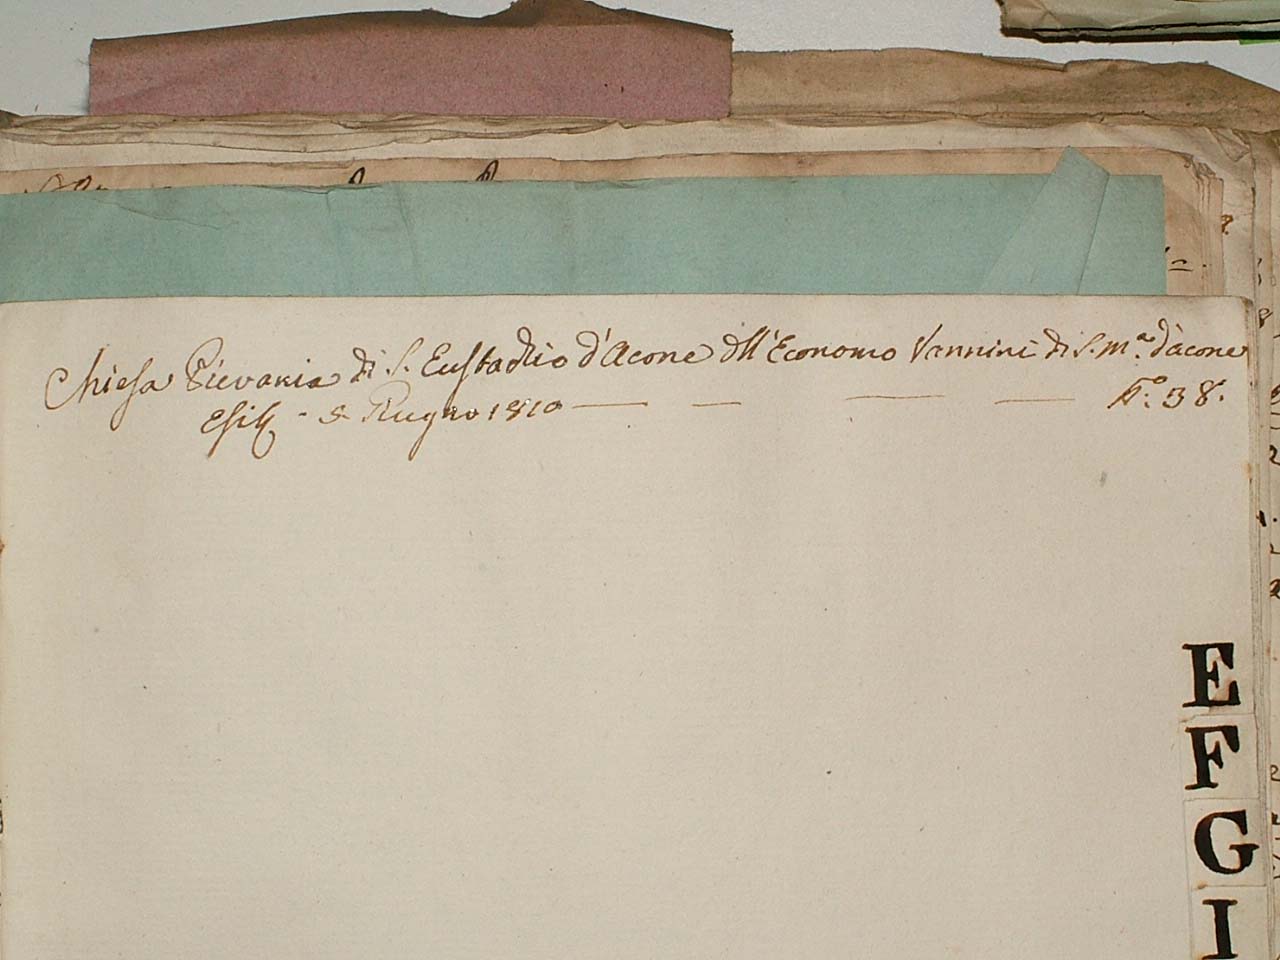 Chiesa Pievania di S. Eustachio d'Acone dll'Economo Vannini di S. Mª. d'acone
Esib - 5 Giugno 1810 — — — — Nº. 38.
E
F
G
I